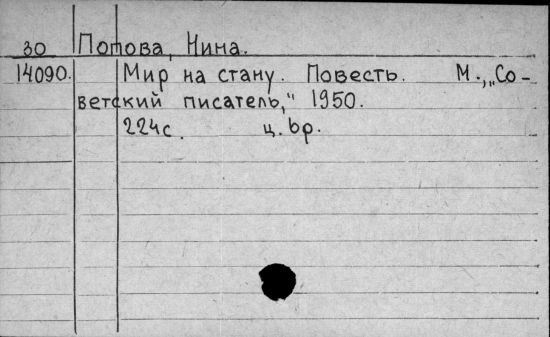 30 Попова, Нина.
14090. Мир на стану. Повесть. М., „Со-
ветский писатель," 1950.
224с. ц. 6р.